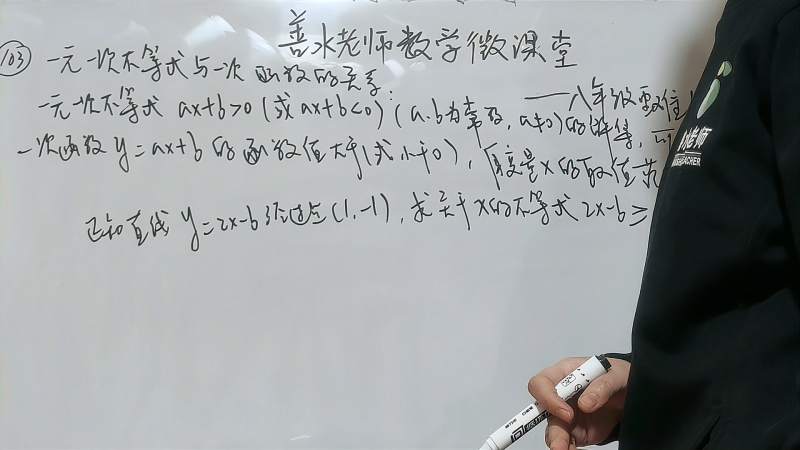 善水老师数学微课堂
103 一元一次不等式与一次函数的关系:
——八年级数
一元一次不等式 ax+b>0 (或 ax+b<0) (a.b为常数, a≠0) 的解集, 可
一次函数 y=ax+b 的函数值大于(或小于0),
变量x的取值范
已知直线 y=2x-b 经过点 (1,-1), 求关于x的不等式 2x-b≥
老师